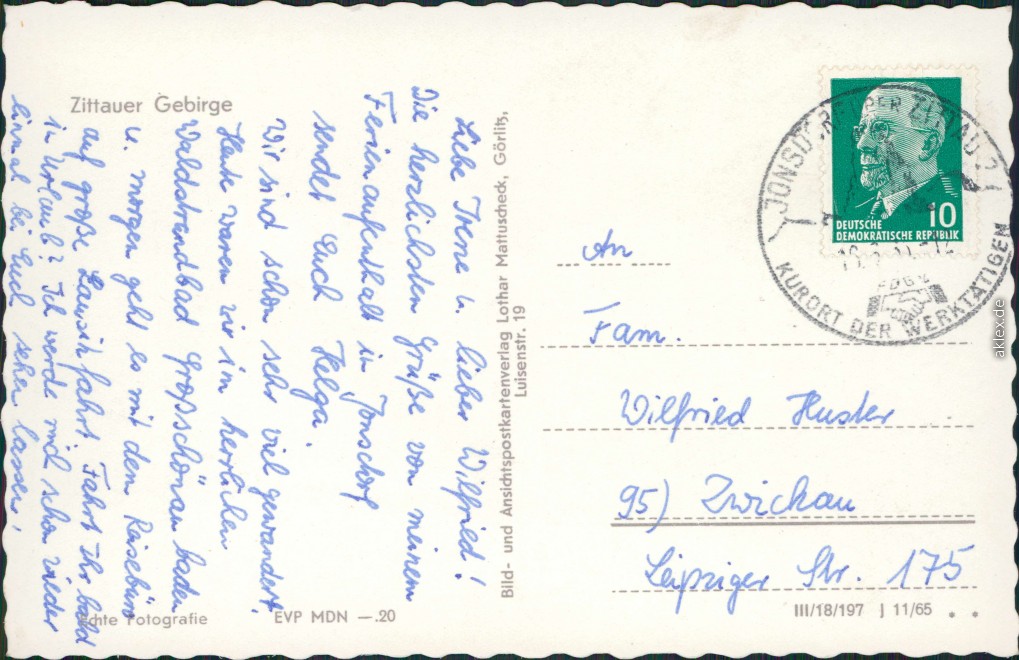 Zittauer Gebirge
Liebe Irene u. lieber Wilfried!
Die herzlichsten Grüße von meinem
Ferienaufenthalt in Jonsdorf
sendet Euch Helga.
Wir sind schon sehr viel gewandert.
Heute waren wir im herrlichen
Waldstrandbad Großschönau baden
u. morgen geht es mit dem Reisebüro
auf große Lausitzfahrt. Fahrt Ihr bald
in Urlaub? Ich werde mich schon wieder
einmal bei Euch sehen lassen!
Echte Fotografie
EVP MDN —.20
Bild- und Ansichtspostkartenverlag Lothar Mattuscheck, Görlitz,
Luisenstr. 19
An
Fam.
Wilfried Huster
95) Zwickau
Leipziger Str. 175
III/18/197 J 11/65
10
DEUTSCHE
DEMOKRATISCHE REPUBLIK
JONSDORF ÜBER ZITTAU 2
FDGB
KURORT DER WERKTÄTIGEN
aklex.de